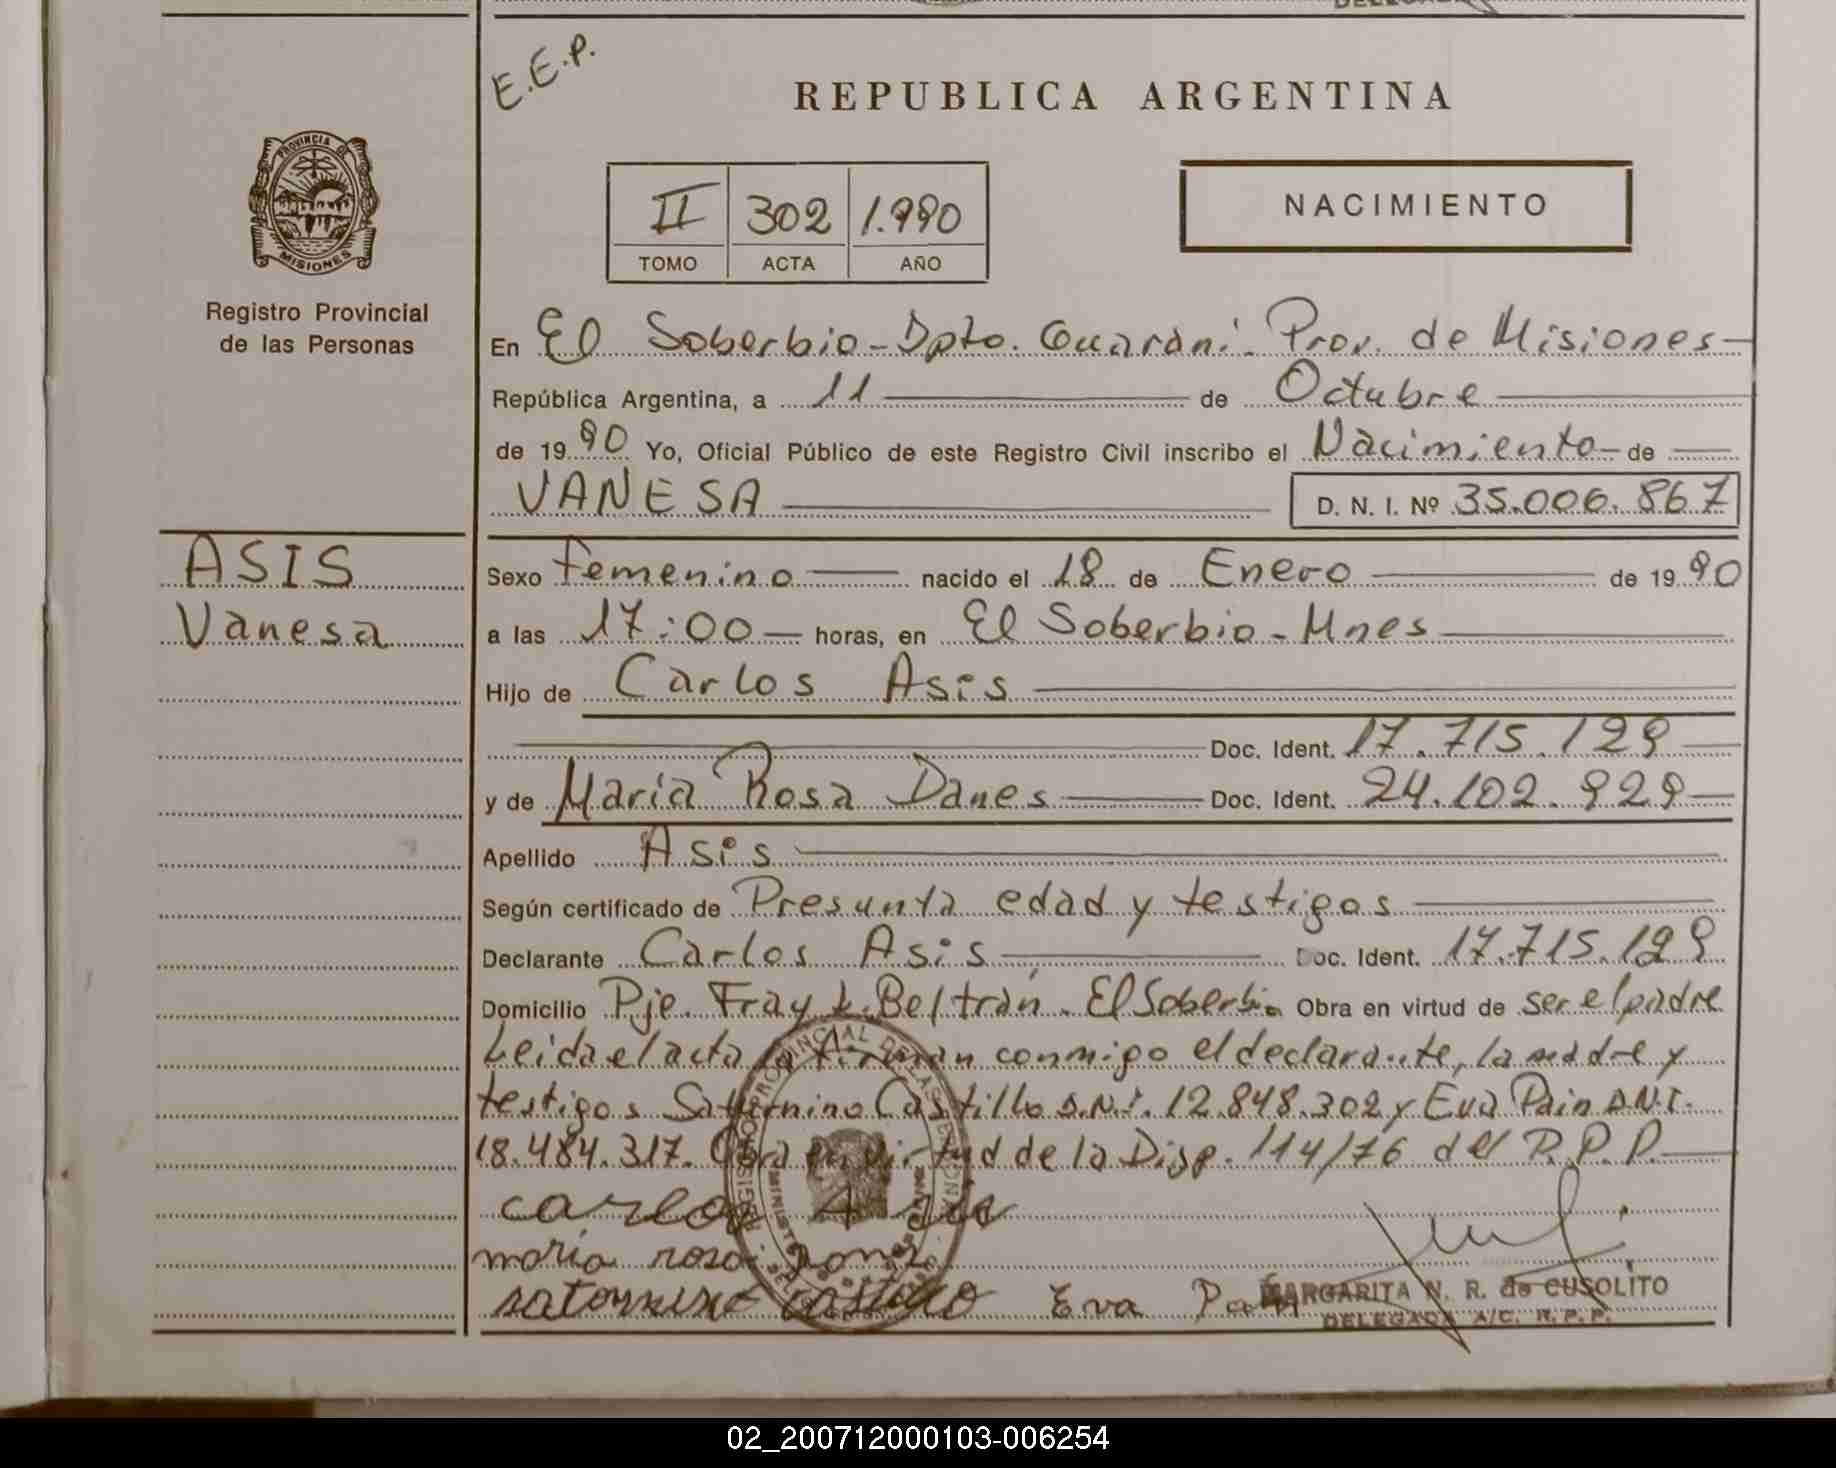 E.E.P.
REPUBLICA ARGENTINA
PROVINCIA DE
MISIONES
II 302 1.990
TOMO ACTA AÑO
NACIMIENTO
Registro Provincial
de las Personas
En El Soberbio - Dpto. Guaraní. Prov. de Misiones -
República Argentina, a 11 de Octubre
de 1990 Yo, Oficial Público de este Registro Civil inscribo el Nacimiento - de
VANESA D. N. I. Nº 35.006.867
ASIS
Vanesa
Sexo Femenino nacido el 18 de Enero de 1990
a las 17:00 - horas, en El Soberbio - Mnes
Hijo de Carlos Asis
Doc. Ident. 17.715.129
y de María Rosa Danes Doc. Ident. 24.102.929
Apellido Asis
Según certificado de Presunta edad y testigos
Declarante Carlos Asis Doc. Ident. 17.715.129
Domicilio Pje. Fray L. Beltrán. El Soberbio Obra en virtud de ser el padre
Leida el acta la firman conmigo el declarante, la madre y
testigos Saturnino Castillo D.N.I. 12.848.302 y Eva Pain D.N.I.
18.484.317. Obra en virtud de la Disp. 114/76 del R.P.P.
carlos Asis
maria rosa
satornino castillo Eva Pain
MARGARITA N. R. de CUSOLITO
DELEGADA A/C. R.P.P.
02_200712000103-006254